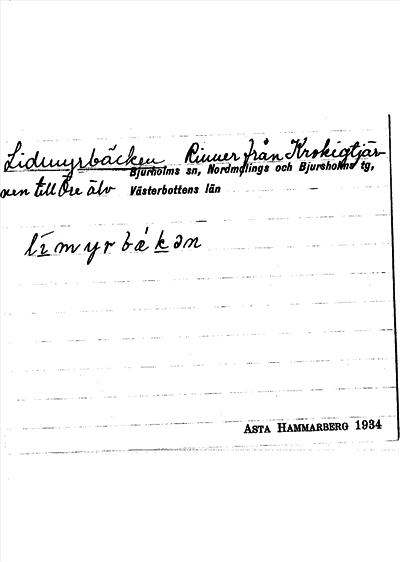 Lidmyrbäcken Rinner från Krokigtjär-
Bjurholms sn, Nordmalings och Bjurholms tg,
nen till Öre älv Västerbottens län
lī myrbäkən
ASTA HAMMARBERG 1934